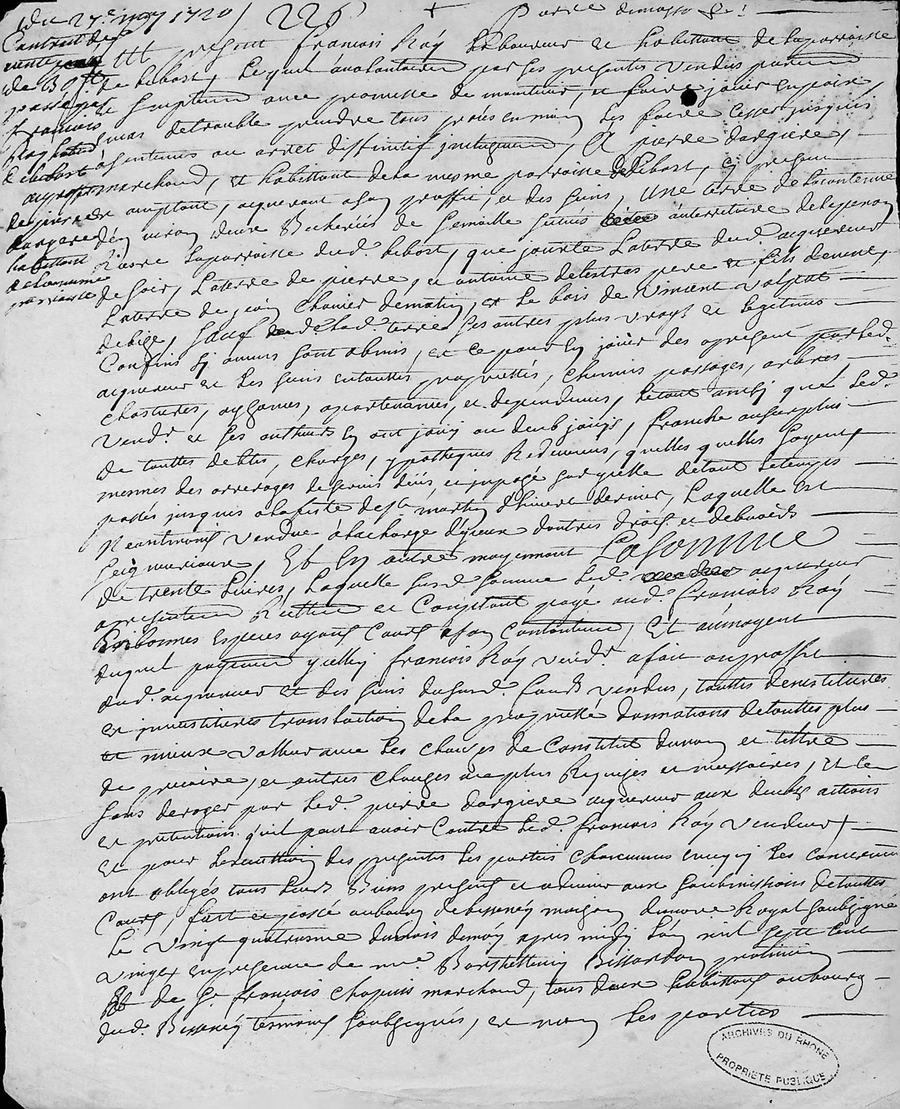 Du 27e may 1720 / 226 + 
Contract de
vente
de
passé par
francois
Ray
au profit
de pierre
dargere
habittant
de la mesme
parroisse
fut present francois Ray laboureur et habittant de la parroisse
de Bibost, lequel a volontairement par ses presentes vendus purement
et simplement avec promesse de maintenir, et faire jouir en paix
sans de trouble prendre tous procés en main les faire cesser jusques
a sentence ou arret diffinitif inclusivement, A pierre dargere
marchand, et habittant de la mesme parroisse de Bibost, cy present
et acceptant, acquerant a son proffit, et des siens, Une terre de la contenue
d'environ deux Bicherées de semaille située au territoire de
Riviere parroisse dud. Bibost, que jouxte la terre dud. acquereur
de soir, la terre de pierre, et antoine delestras pere et fils de vent,
la terre de jean Chanier de matin, et le bois de Vincent Volpat
de bize, sauf de lad. terre ses autres plus vrays et legitimes
Confins sy aucuns sont obmis, et ce pour en jouir des apresent par led.
acquereur et les siens en touttes proprietes, chemins passages, arbres
clostures, aysances, apartenances, et dependances, le tout ainsy que led.
vendr. et ses autheurs en ont jouy ou deub jouir, franche au surplus
de touttes debtes, charges, ypotheques Redevances, quelles quelles soyent
mesmes des arrerages de servis deus et imposé sur icelle de tout le temps
passés jusques a la feste de st. martin d'hiver dernier, laquelle est
neantmoins vendue a la charge d'iceux d'autres droits et debvoirs
seigneuriaux, Et En autre moyennant La somme
de trente Livres, laquelle susd. somme led. acquereur
a presentement Reellement et Comptant payé aud. francois Ray
En bonnes Especes ayant Cours a son Contentement, Et au moyen
duquel payement icelluy francois Ray vendr. a fait au proffit
dud. acquereur et des siens du susd. fonds vendus, touttes demissions
et investitures translation de la proprieté donnations de touttes plus
et mieux vallue avec les clauses de Constitut du nom et tiltre
de precaire, et autres clauses a ce plus Requises et necessaires, et ce
sans deroger par led. pierre dargere acquereur aux deubs actions
et pretentions qu'il peut avoir Contre led. francois Ray vendeur /
Et pour l'execution des presentes les parties chacunnes en ce qui les concerne
ont obligés tous leurs Biens presents et advenir aux soubmissions de touttes
Cours, fait et passé au bourg de Bessenay maison du nore. Royal soubsigné
Le vingt quatriesme du mois de may apres midy l'an mil sept cent
vingt en presence de me. Barthellemy Bissardon praticien
et de Sr. francois Chapuis marchand, tous deux habittants au bourg
dud. Bessenay temoins soubsignés, et non les parties
ARCHIVES DU RHONE
PROPRIETE PUBLIQUE